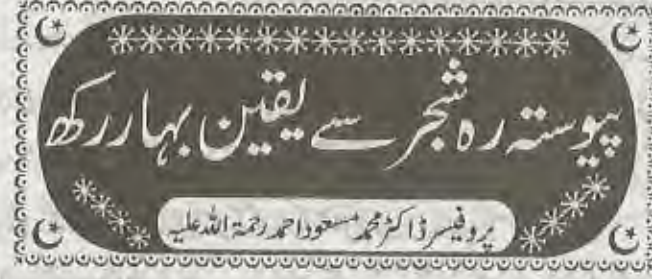 پیوستہ رہ شجر سے یقین بہار رکھ
پروفیسر ڈاکٹر محمد مسعود احمد رحمۃ اللہ علیہ